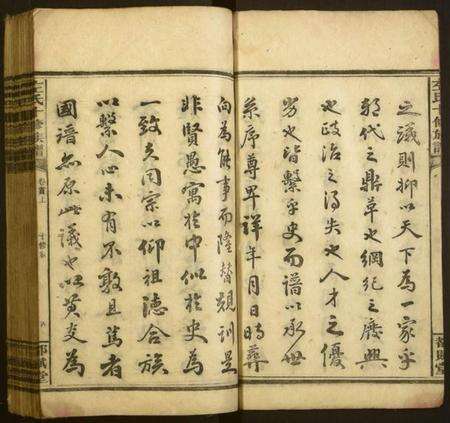 之議則抑以天下為一家乎
朝代之鼎革也綱紀之廢興
也政治之得失也人才之優
劣也皆繫乎史而譜以承世
系序尊卑詳年月日時葬
向為能事而隆替規訓是
非賢愚寓於中似於史為
一致夫同宗以仰祖德合族
以繫人心未有不敦且篤者
國譜無原此議也以黃支為
左氏 修族譜 卷首上